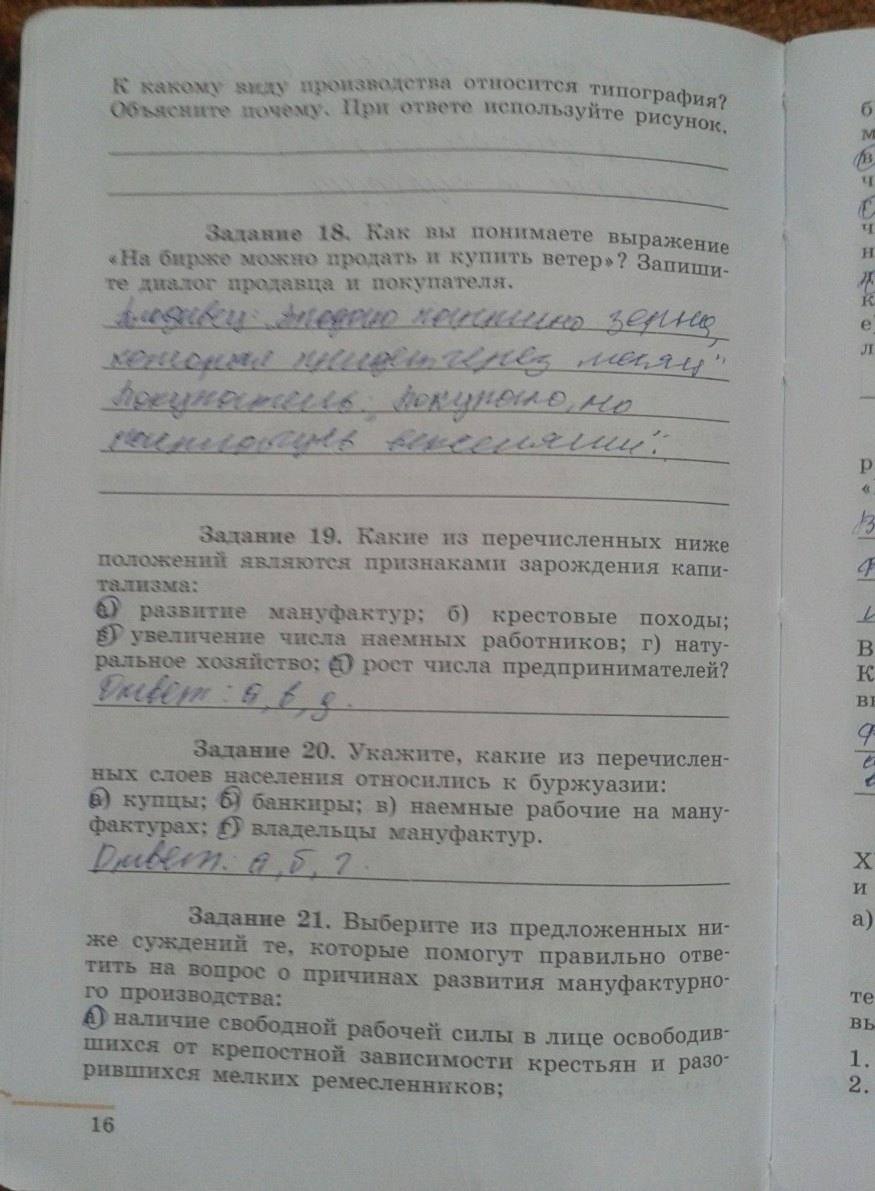 К какому виду производства относится типография?
Объясните почему. При ответе используйте рисунок.
Задание 18. Как вы понимаете выражение
«На бирже можно продать и купить ветер»? Запиши-
те диалог продавца и покупателя.
зерна,
которая придет через месяц"
Покупатель: "Покупаю, но
векселями".
Задание 19. Какие из перечисленных ниже
положений являются признаками зарождения капи-
тализма:
а) развитие мануфактур; б) крестовые походы;
в) увеличение числа наемных работников; г) нату-
ральное хозяйство; д) рост числа предпринимателей?
Ответ: а, в, д.
Задание 20. Укажите, какие из перечислен-
ных слоев населения относились к буржуазии:
а) купцы; б) банкиры; в) наемные рабочие на ману-
фактурах; г) владельцы мануфактур.
Ответ: а, б, г.
Задание 21. Выберите из предложенных ни-
же суждений те, которые помогут правильно отве-
тить на вопрос о причинах развития мануфактурно-
го производства:
а) наличие свободной рабочей силы в лице освободив-
шихся от крепостной зависимости крестьян и разо-
рившихся мелких ремесленников;
16
а)
1.
2.